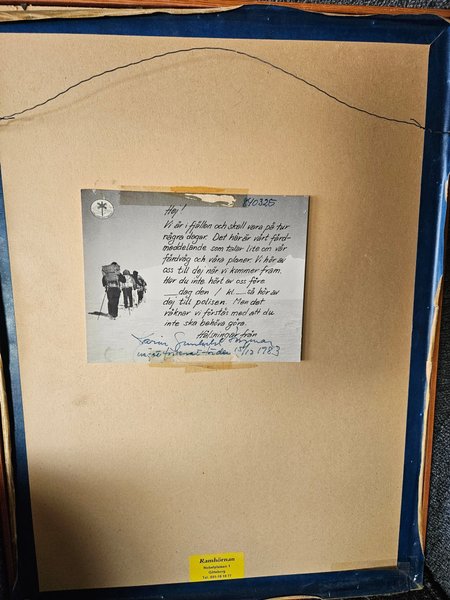 840325
Hej!
Vi är i fjällen och skall vara på tur
några dagar. Det här är vårt färd-
meddelande som talar lite om vår
färdväg och våra planer. Vi hör av
oss till dej när vi kommer fram.
Har du inte hört av oss före
___dag den / kl___så hör av
dej till polisen. Men det
räknar vi förstås med att du
inte ska behöva göra.
Hälsningar från
Karin
1983
Ramhörnan
Nobelplatsen 1
Göteborg